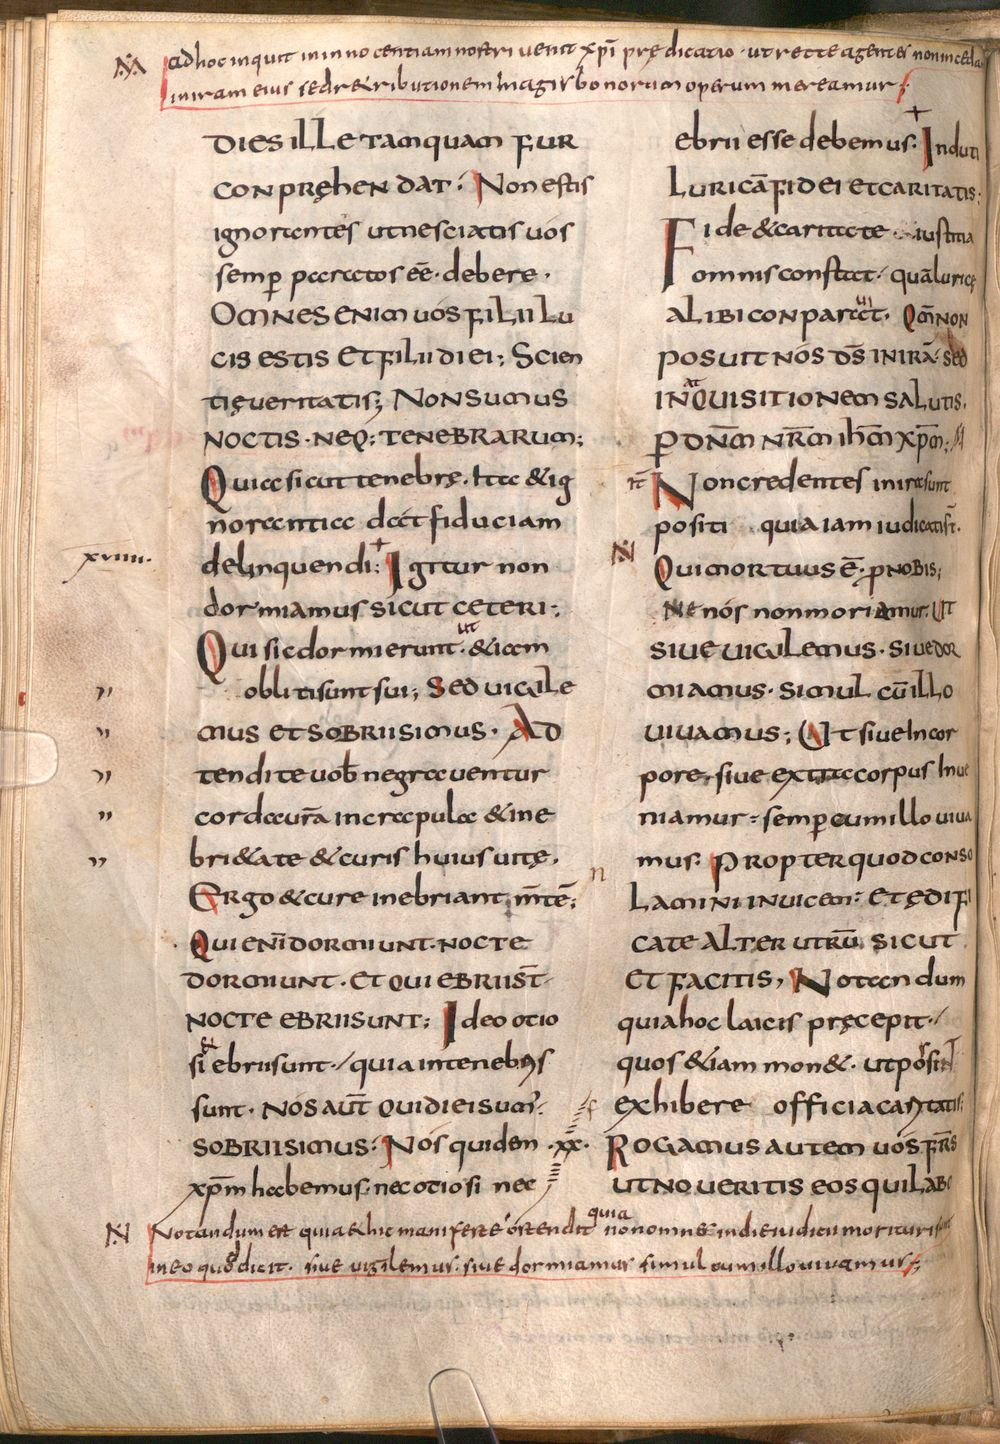 ad hoc inquit in innocentiam nostri uenit xp̄i prędicatio · ut recte agentes non inceda
in iram eius sed retributionem magis bonorum operum mereamur
DIES ILLE TAMQUAM FUR
CONPRĘHENDAT · Non estis
ignorantes ut nesciatis uos
semp̄ paratos eē · debere ·
OMNES ENIM UOS FILII LU
CIS ESTIS ET FILII DIEI ; Scien
tię ueritatis ; NON SUMUS
NOCTIS · NEQ ; TENEBRARUM ;
Quia sicut tenebrę · Ita & ig
norantia dat fiduciam
xuiiii ·
delinquendi ; Igitur non
dormiamus sicut ceteri ;
Qui sic dormierunt · ut & iam
obliti sunt sui ; Sed uigile
mus et sobrii simus · Ad
tendite uob̄ ne grauentur
corda ur̄a in crapula & ine
bri&ate & curis huius uitę ·
Ergo & cure inebriant m̄tē ;
Qui enī dormiunt · nocte
dormiunt · et qui ebrii st̄
nocte ebrii sunt ; Ideo otio
si & ebrii sunt · / quia in tenebris
sunt · Nos aut̄ qui diei sum̄ ·
sobrii simus · Nos quidem
xp̄m habemus · nec otiosi nec
ebrii esse debemus · Induti
luricā fidei et caritatis ·
Fide & caritate · iustitia
omnis constat · / quā luricę
alibi conparauit · Qm̄ non
posuit nos dS in irā · sed
in adquisitionem salutis ·
p̄ dnm̄ nr̄m ihm̄ xp̄m ·
Non credentes in ira sunt
positi quia iam iudicati st̄ ·
Qui mortuus ē · p nobis ;
Ne nos non moriamur · Ut
siue uigilemus · siue dor
miamus · simul cū illo
uiuamus ; Ut siue in cor
pore · siue extra corpus inue
niamur · semp̄ cum illo uiua
mus · Propter quod conso
lamini inuicem · Et ędifi
cate alterutrū · sicut
et facitis , Notandum
quia hoc laicis pręcepit · /
quos & iam mon& · ut possint
exhibere officia caritatis ·
· xx · Rogamus autem uos fr̄s
ut noueritis eos qui labo
Notandum est quia & hic manifeste ostendit quia non omnes in die iudicii morituri sint
in eo quod dicit · siue uigilemus · siue dormiamus simul cum illo uiuamus